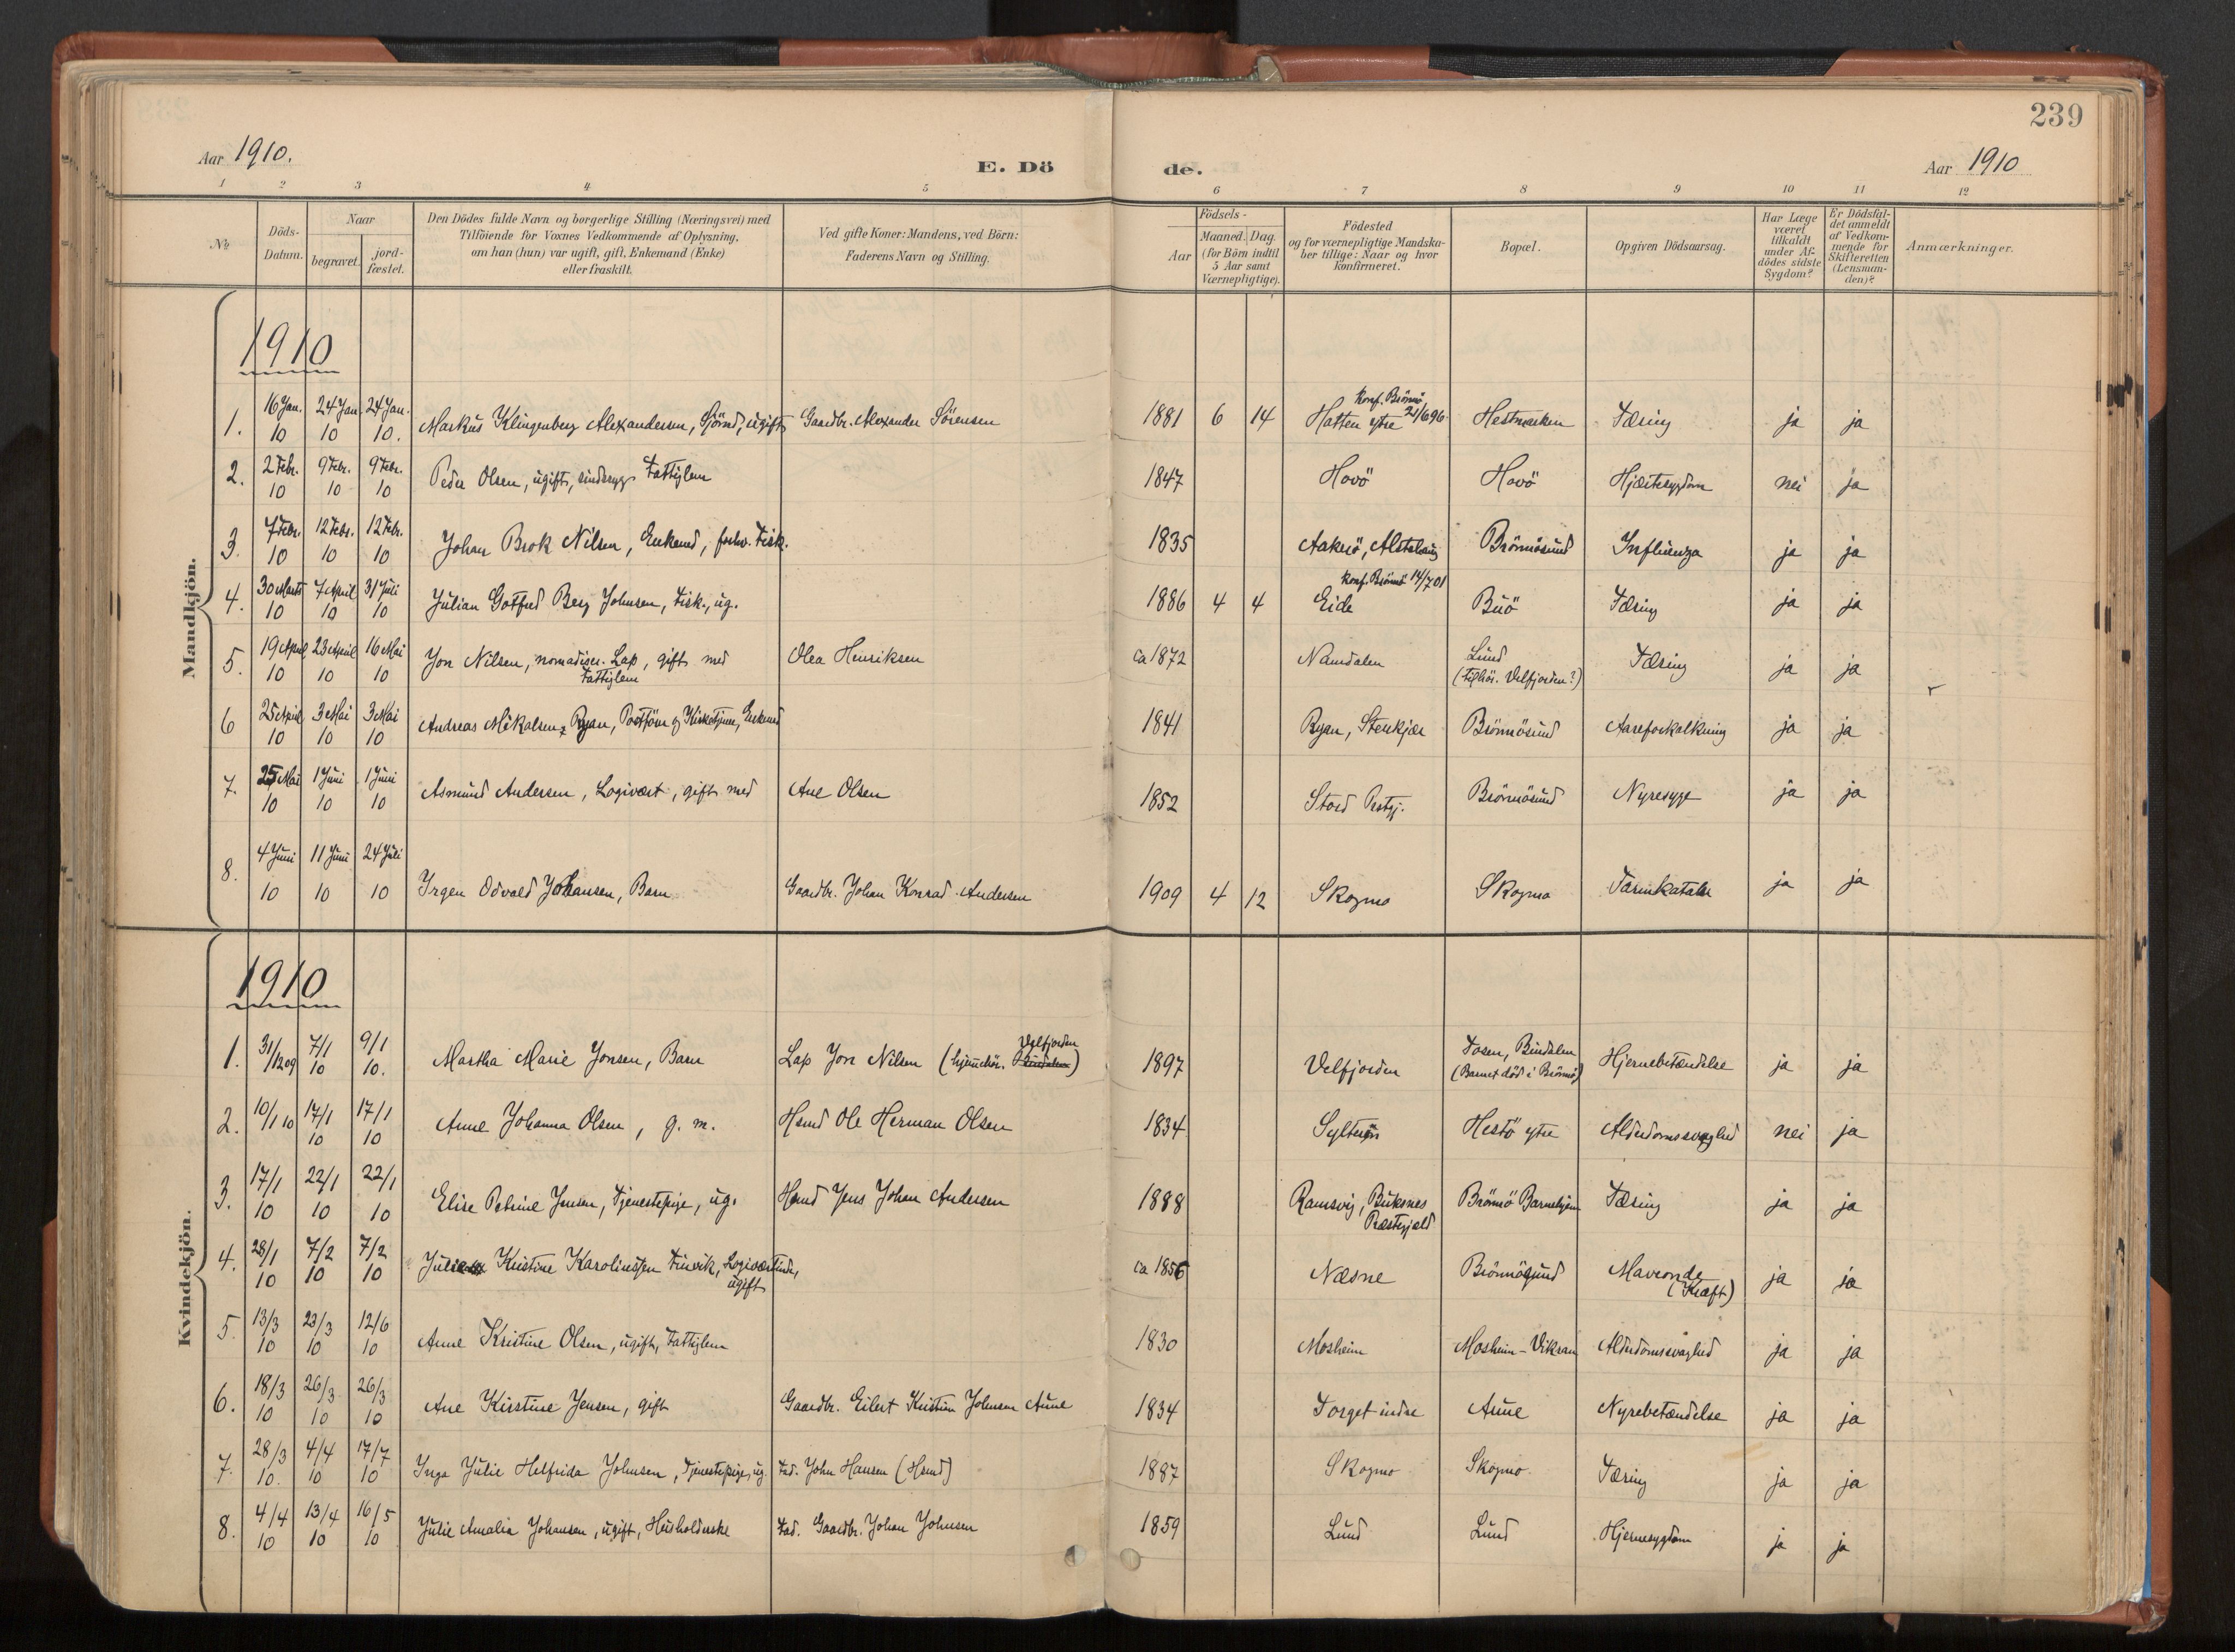 239
Aar 1910. E. Dö de. Aar 1910
1 2 3 4 5 6 7 8 9 10 11 12
No. Döds-Datum. Naar begravet. jord-fæstet. Den Dödes fulde Navn og borgerlige Stilling (Næringsvei) med Tilföiende for Voxnes Vedkommende af Oplysning, om han (hun) var ugift, gift, Enkemand (Enke) eller fraskilt. Ved gifte Koner: Mandens, ved Börn: Faderens Navn og Stilling. Födsels- Aar Maaned. Dag. (for Börn indtil 5 Aar samt Værnepligtige). Födested og for værnepligtige Mandskaber tillige: Naar og hvor konfirmeret. Bopæl. Opgiven Dödsaarsag. Har Læge været tilkaldt under Afdödes sidste Sygdom? Er Dödsfaldet anmeldt af Vedkommende for Skifteretten (Lensmanden)? Anmærkninger.
Mandkjön.
1910
1. 16 Jan. 10 24 Jan. 10 24 Jan. 10. Markus Klingenberg Alexandersen, Sjömd, ugift Gaardbr. Alexander Sörensen 1881 6 14 Hatten ytre konf. Brönnö 21/6 96. Hestmarken Tæring ja ja
2. 2 Febr. 10 9 Febr. 10 9 Febr. 10 Peder Olsen, ugift, sindssyg Fattiglem 1847 Hovö Hovö Hjertesygdom nei ja
3. 7 Febr. 10 12 Febr. 10 12 Febr. 10 Johan Brok Nilsen, Enkemd, forhv. Fisk. 1835 Aakerö, Alstahaug Brönnösund Influenza ja ja
4. 30 Marts 10 7 April 10 31 Juli 10 Julian Gotfred Berg Johnsen, Fisk., ug. 1886 4 4 Eide konf. Brönnö 14/7 01 Buö Tæring ja ja
5. 19 April 10 23 April 10 16 Mai 10 Jon Nilsen, nomadiser. Lap, gift med Fattiglem Olea Henriksen ca 1872 Namdalen Lund (tilhör. Velfjorden?) Tæring ja ja
6 25 April 10 3 Mai 10 3 Mai 10 Andreas Mikalsen Ryan, Postförer og Kirketjener, Enkemd 1841 Ryan, Stenkjær Brönnösund Aareforkalkning ja ja
7. 25 Mai 10 1 Juni 10 1 Juni 10 Asmund Andersen, Logivært, gift med Ane Olsen 1852 Stord Prstgj. Brönnösund Nyresyge ja ja
8. 4 Juni 10 11 Juni 10 24 Juli 10 Jrgen Odvald Johansen, Barn Gaardbr. Johan Konrad Andersen 1909 4 12 Skogmo Skogmo Tarmkatarr ja ja
Kvindekjön.
1910
1. 31/12 09 7/1 10 9/1 10. Martha Marie Jonsen, Barn Lap Jon Nilsen (hjemhör. Velfjorden) 1897 Velfjorden Tosen, Bindalen (Barnet död i Brönnö) Hjernebetændelse ja ja
2. 10/1 10 17/1 10 17/1 10 Anne Johanna Olsen, g. m. Hsmd Ole Herman Olsen 1834 Hestö ytre Alderdomssvaghed nei ja
3. 17/1 10 22/1 10 22/1 10 Elise Petrine Jensen, Tjenestepige, ug. Hsmd Jens Johan Andersen 1888 Ramsvig, Buksnes Præstegjæld Brönnö Barnehjem Tæring ja ja
4. 28/1 10 7/2 10 7/2 10 Julie Kristine Karoliussen Finvik, Logiværtinde, ugift ca 1856 Næsne Brönnösund Maveonde (Kræft) ja ja
5. 13/3 10 23/3 10 12/6 10 Anne Kristine Olsen, ugift, Fattiglem 1830 Mosheim Mosheim-Vikran Alderdomssvaghed ja ja
6. 18/3 10 26/3 10 26/3 10 Ane Kirstine Jensen, gift Gaardbr. Eilert Kristian Johnsen Aune 1834 Torget indre Aune Nyrebetændelse ja ja
7. 28/3 10. 4/4 10 17/7 10 Inga Julie Helfrida Johnsen, Tjenestepige, ug. Fad. John Hansen (Hsmd) 1887 Skogmo Skogmo Tæring ja ja
8. 4/4 10 13/4 10 16/5 10 Julie Amalia Johansen, ugift, Husholderske Fad. Gaardbr. Johan Johnsen 1859 Lund Lund Hjernesygdom ja ja